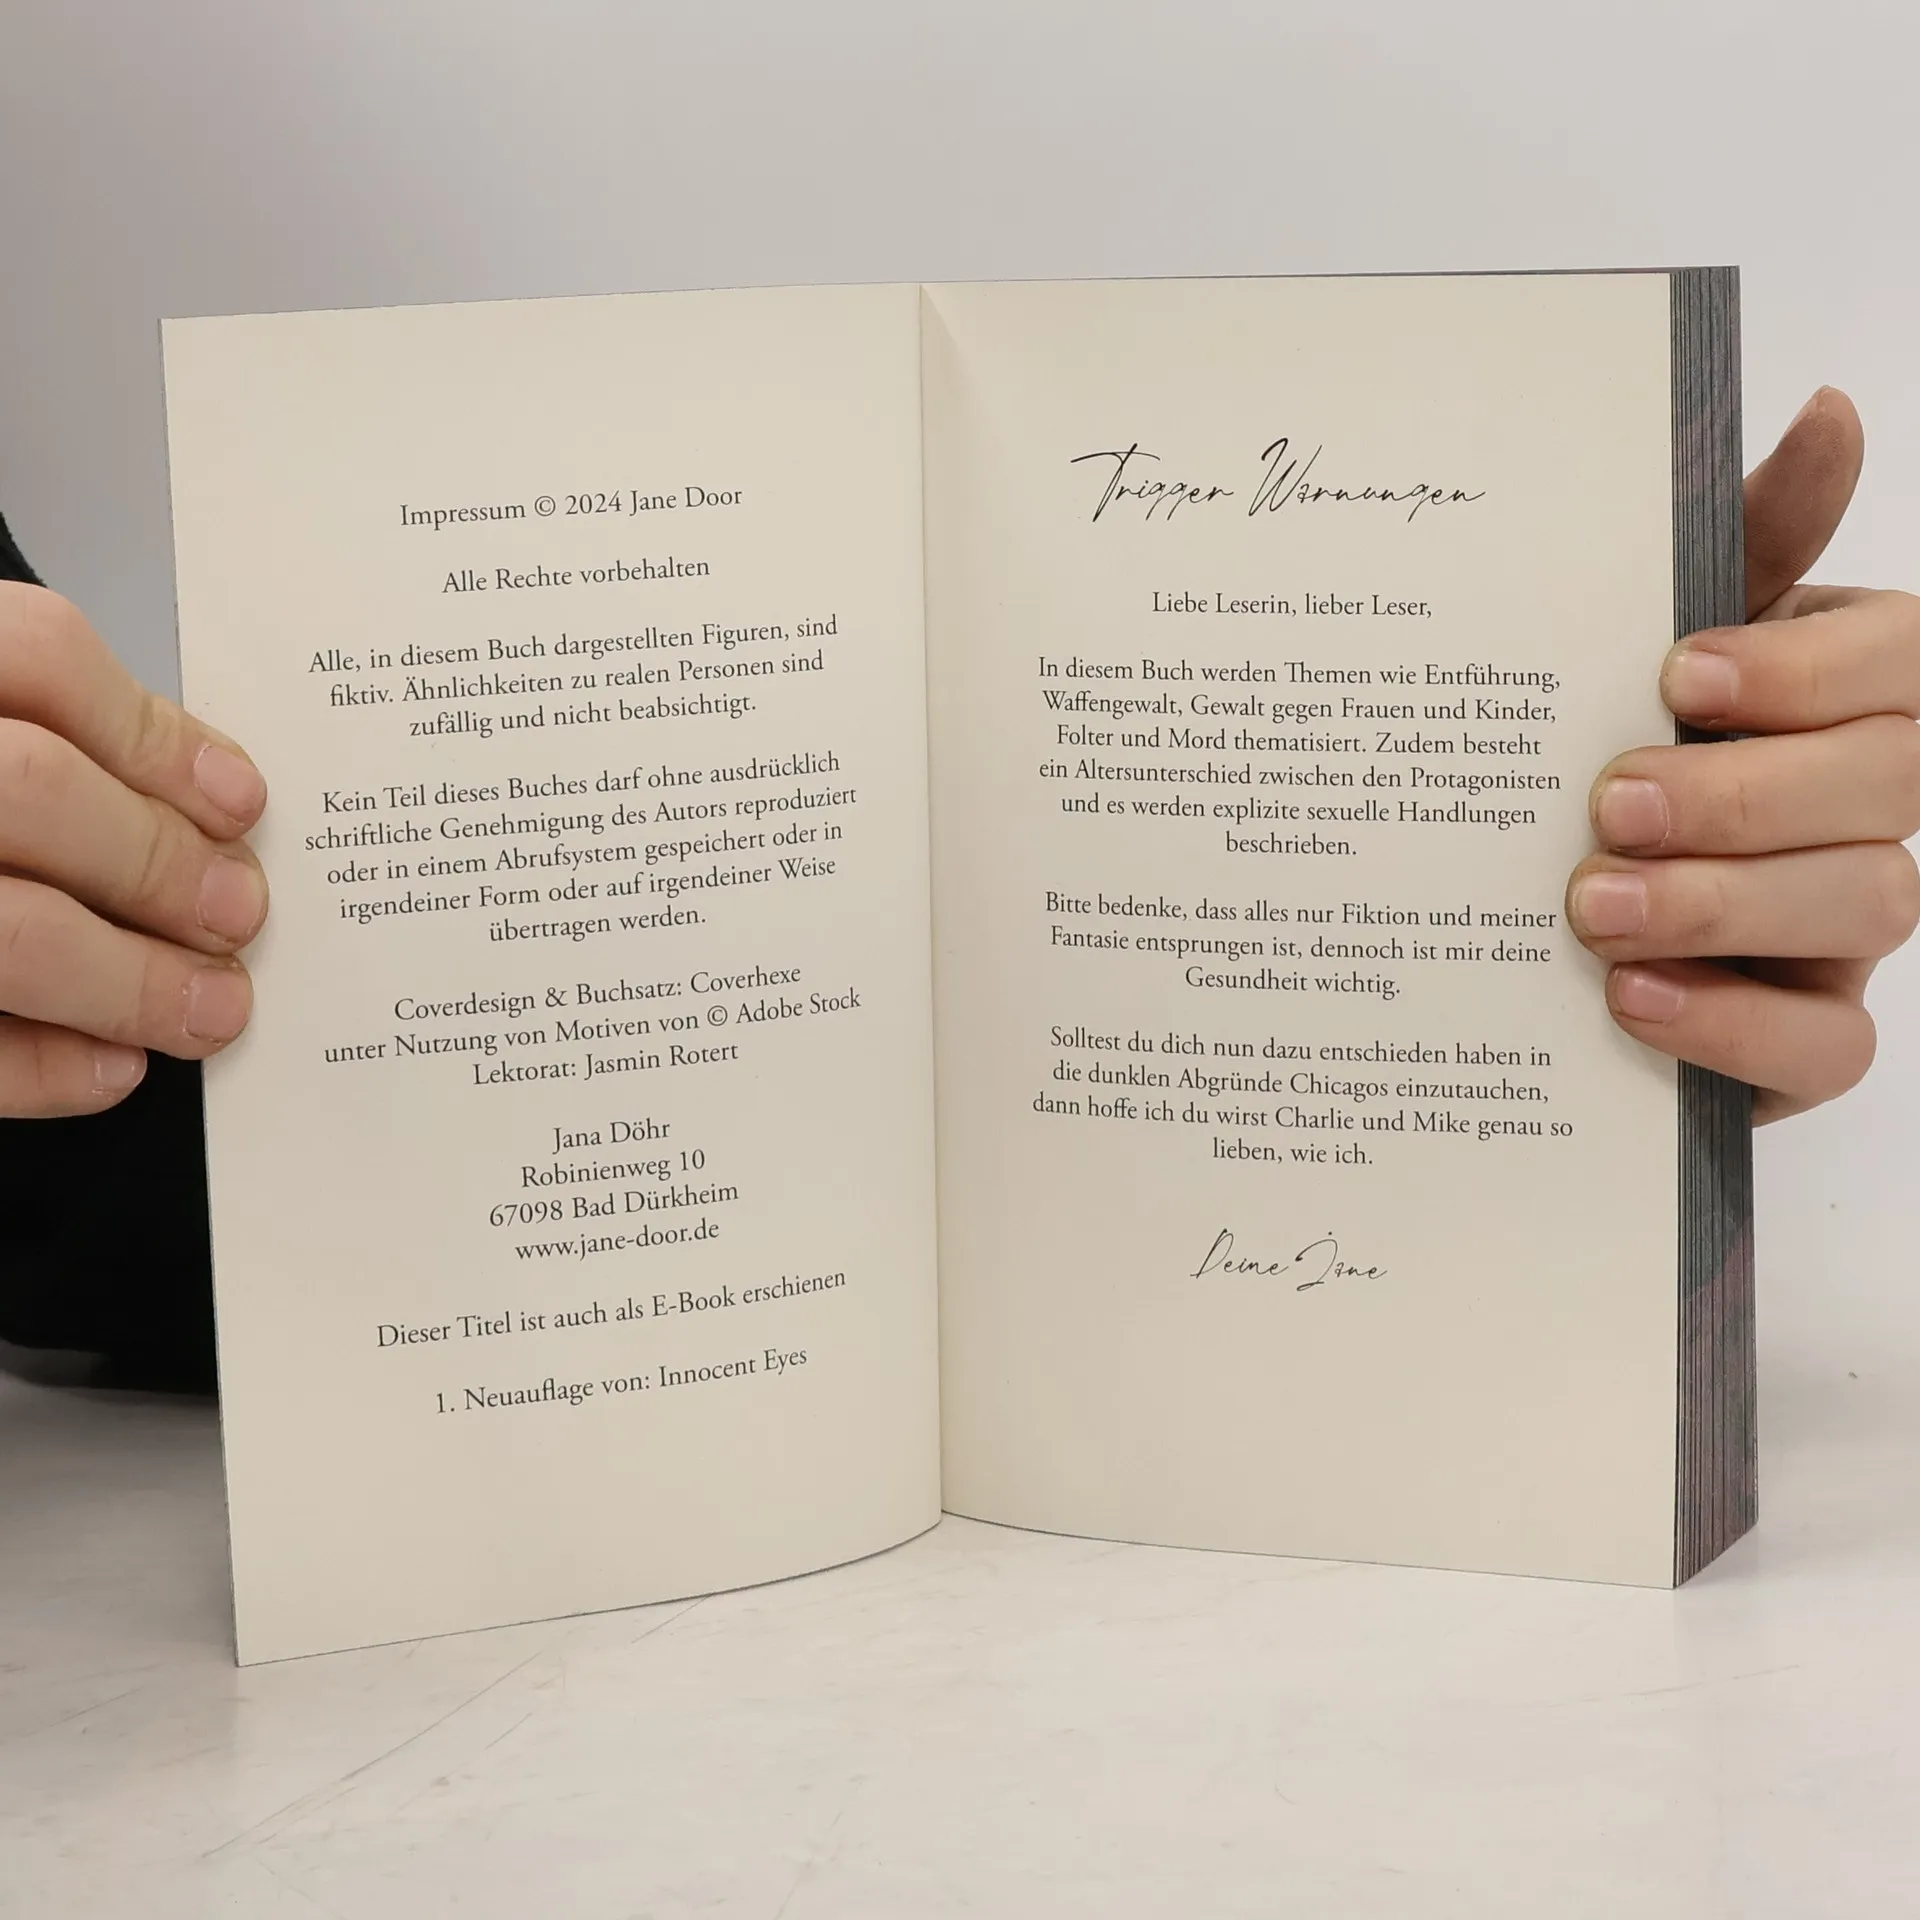 Impressum © 2024 Jane Door
Alle Rechte vorbehalten
Alle, in diesem Buch dargestellten Figuren, sind
fiktiv. Ähnlichkeiten zu realen Personen sind
zufällig und nicht beabsichtigt.
Kein Teil dieses Buches darf ohne ausdrücklich
schriftliche Genehmigung des Autors reproduziert
oder in einem Abrufsystem gespeichert oder in
irgendeiner Form oder auf irgendeiner Weise
übertragen werden.
Coverdesign & Buchsatz: Coverhexe
unter Nutzung von Motiven von © Adobe Stock
Lektorat: Jasmin Rotert
Jana Döhr
Robinienweg 10
67098 Bad Dürkheim
www.jane-door.de
Dieser Titel ist auch als E-Book erschienen
1. Neuauflage von: Innocent Eyes
Trigger Warnungen
Liebe Leserin, lieber Leser,
In diesem Buch werden Themen wie Entführung,
Waffengewalt, Gewalt gegen Frauen und Kinder,
Folter und Mord thematisiert. Zudem besteht
ein Altersunterschied zwischen den Protagonisten
und es werden explizite sexuelle Handlungen
beschrieben.
Bitte bedenke, dass alles nur Fiktion und meiner
Fantasie entsprungen ist, dennoch ist mir deine
Gesundheit wichtig.
Solltest du dich nun dazu entschieden haben in
die dunklen Abgründe Chicagos einzutauchen,
dann hoffe ich du wirst Charlie und Mike genau so
lieben, wie ich.
Deine Jane